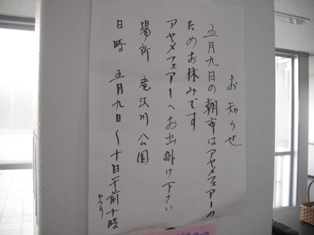 お知らせ
五月九日の朝市はアヤメフェアーの
ためお休みです
アヤメフェアーへお出掛け下さい
場所 竜沢川公園
日時 五月九日〜十日午前十時
より